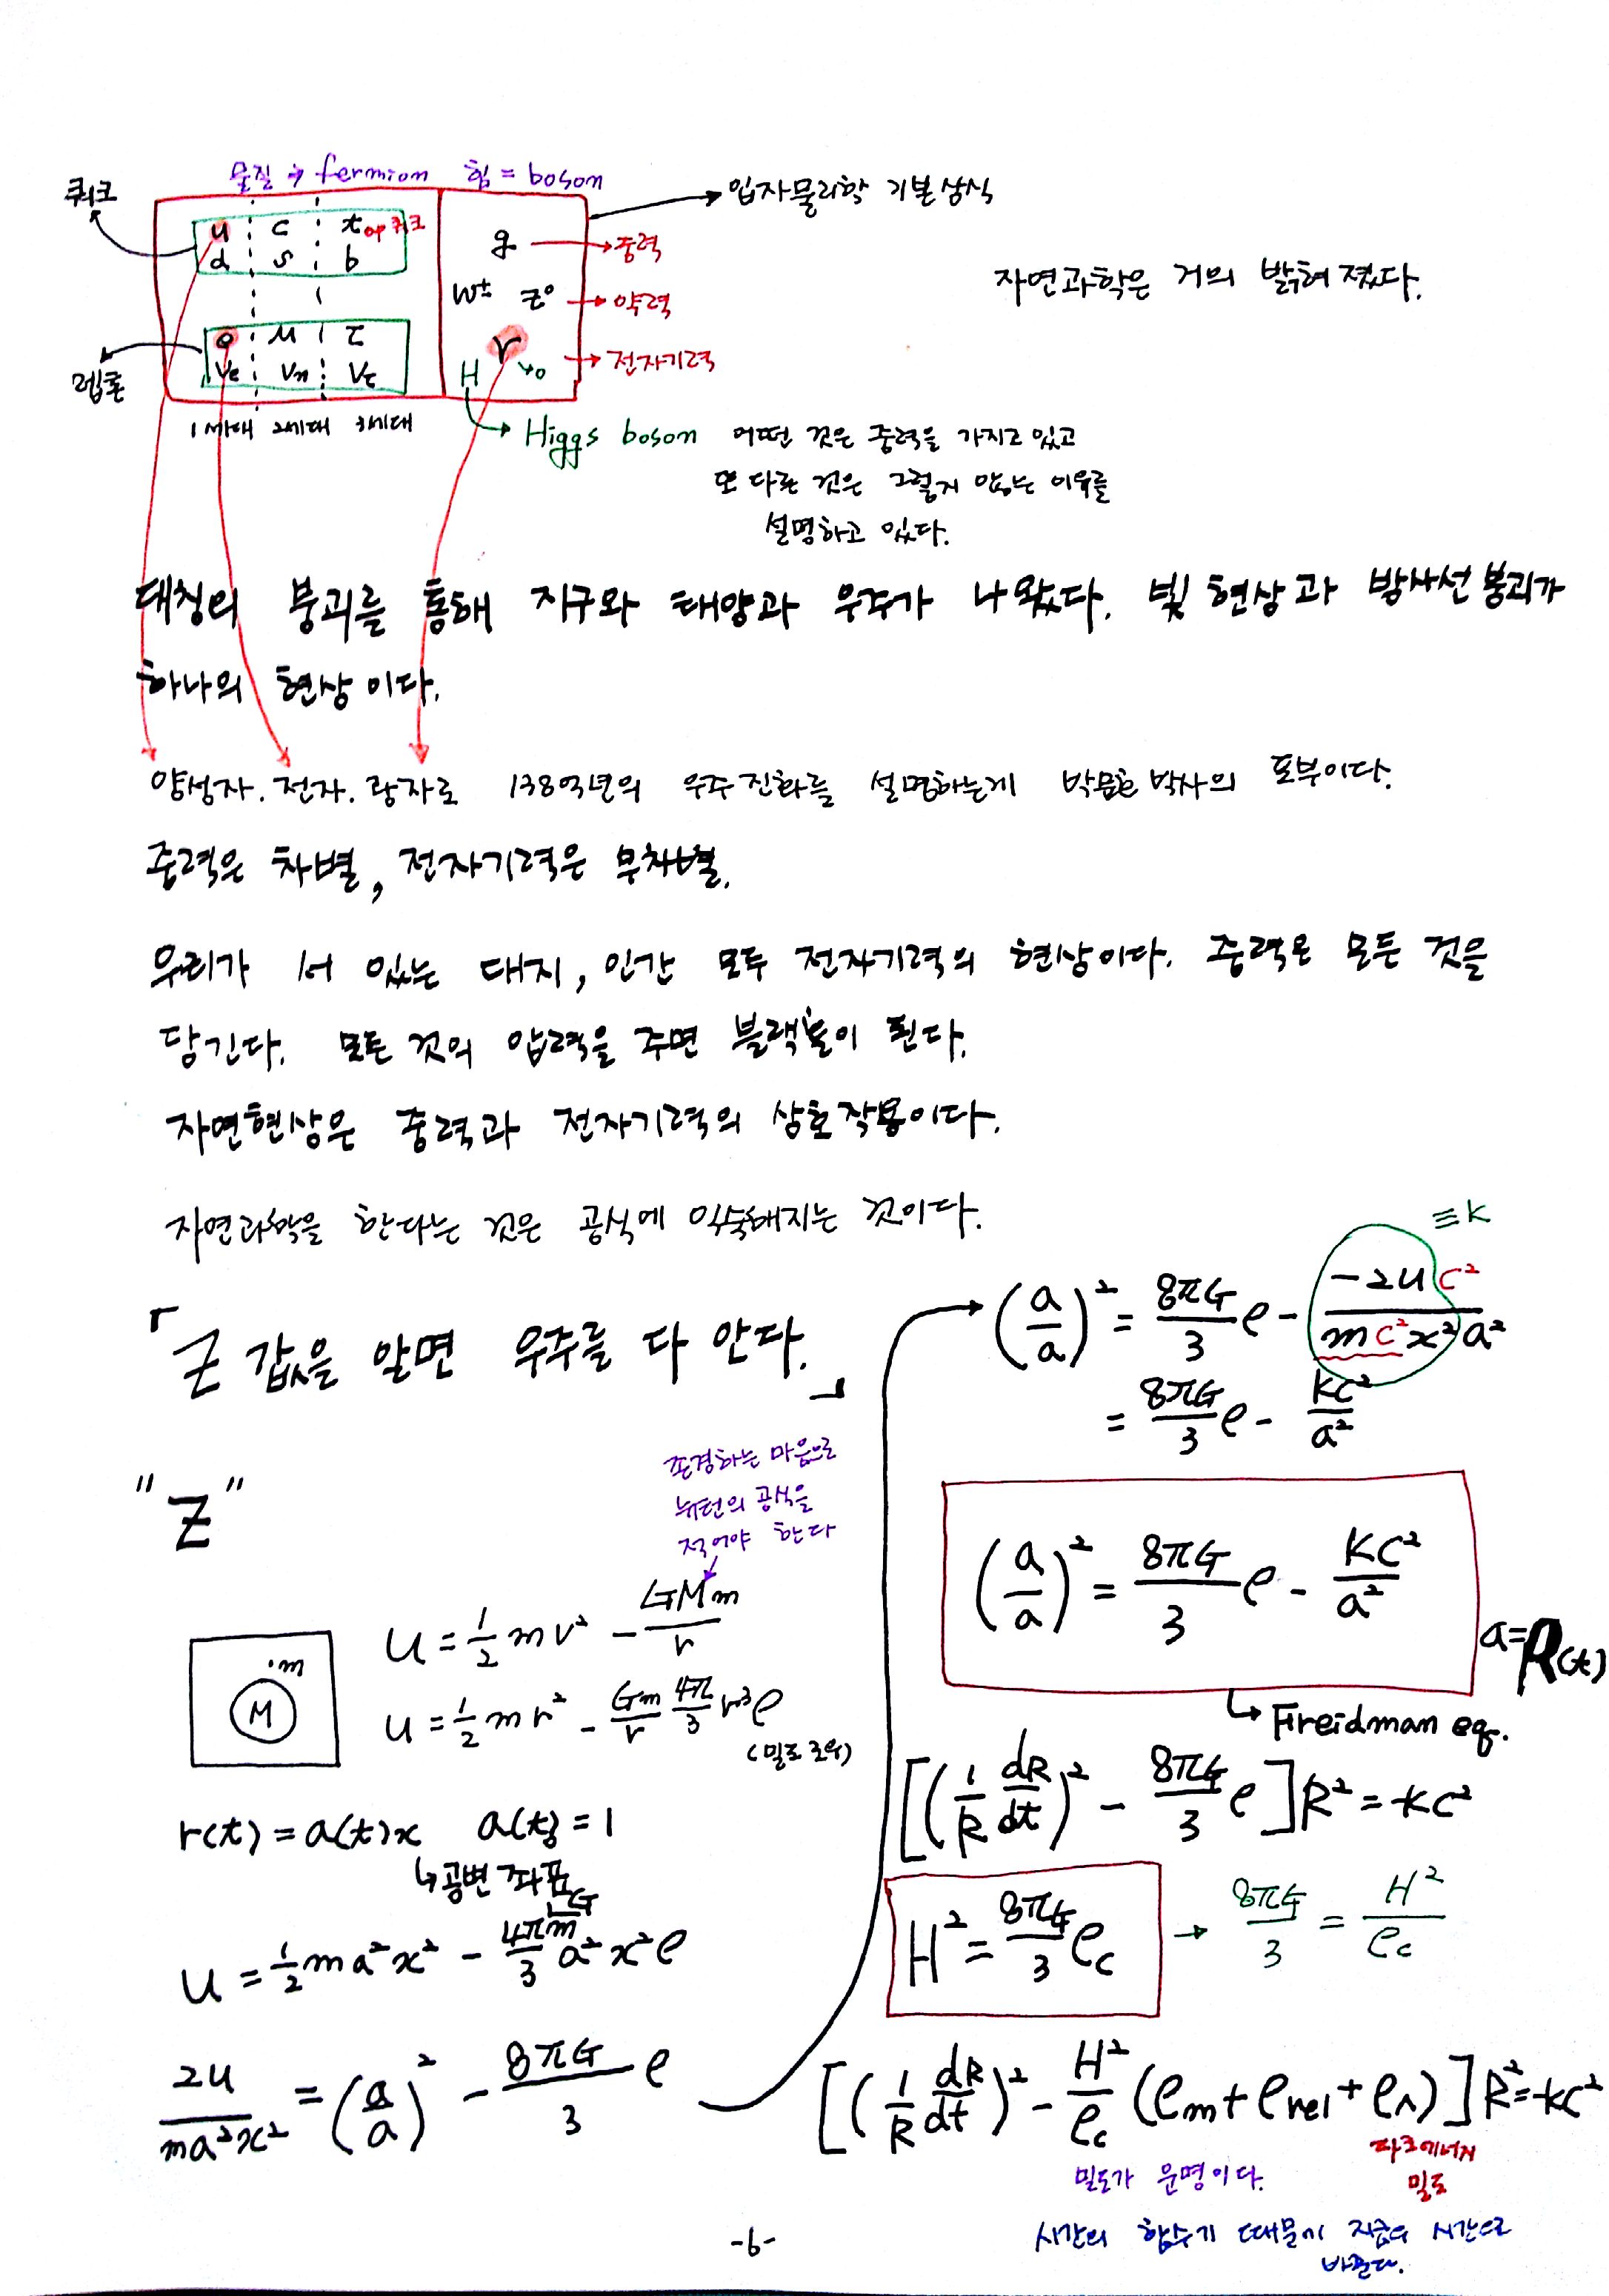 물질 → fermion 힘 = boson
쿼크
입자물리학 기본상식
u c top쿼크
d s b
g → 중력
W± Z⁰ → 약력
자연과학은 거의 밝혀졌다.
e μ τ
νe νμ ντ
r → 0 → 전자기력
H
렙톤
1세대 2세대 3세대
Higgs boson 어떤 것은 중력을 가지고 있고
또 다른 것은 그렇지 않는 이유를
설명하고 있다.
대칭의 붕괴를 통해 지구와 태양과 우주가 나왔다. 빛 현상과 방사선 붕괴가
하나의 현상이다.
양성자. 전자. 광자로 138억년의 우주진화를 설명하는게 박문호 박사의 포부이다.
중력은 차별, 전자기력은 무차별.
우리가 서 있는 대지, 인간 모두 전자기력의 현상이다. 중력은 모든 것을
당긴다. 모든 것의 압력을 주면 블랙홀이 된다.
자연현상은 중력과 전자기력의 상호작용이다.
자연과학을 한다는 것은 공식에 익숙해지는 것이다.
「Z 값을 알면 우주를 다 안다.」
"Z"
존경하는 마음으로
뉴턴의 공식을
적어야 한다
·m
M
U = 1/2 mv² - GMm/r
U = 1/2 mr² - Gm/r 4π/3 r³ρ
(밀도 로우)
r(t) = a(t)x a(t) = 1
↳ 공변 좌표
U = 1/2 ma²x² - 4πGm/3 a²x²ρ
2U/ma²x² = (a/a)² - 8πG/3 ρ
≡K
(a/a)² = 8πG/3 ρ - -2Uc²/mc²x²a²
= 8πG/3 ρ - KC²/a²
(a/a)² = 8πG/3 ρ - KC²/a²
a=R(t)
↳ Freidman eq.
[(1/R dR/dt)² - 8πG/3 ρ]R² = -kc²
H² = 8πG/3 ρc → 8πG/3 = H²/ρc
[(1/R dR/dt)² - H²/ρc (ρm + ρrel + ρΛ)]R² = -kc²
밀도가 운명이다.
다크에너지
밀도
시간의 함수기 때문에 지금의 시간으로
바꾼다.
-6-